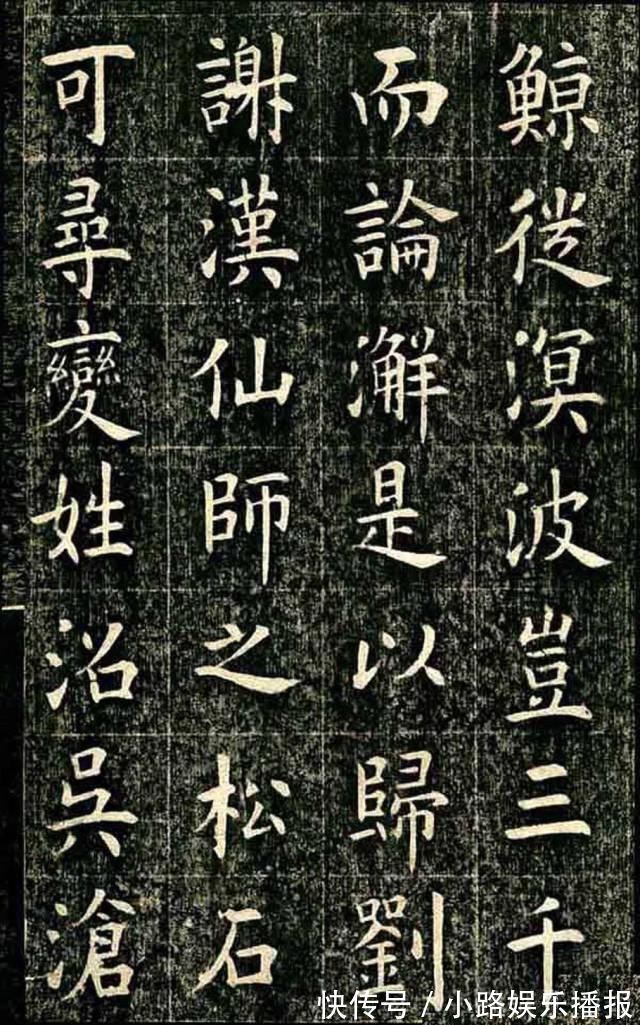 鯨從溟波豈三千
而論澥是以歸劉
謝漢仙師之松石
可尋變姓沿吳滄
快传号/小路娱乐播报